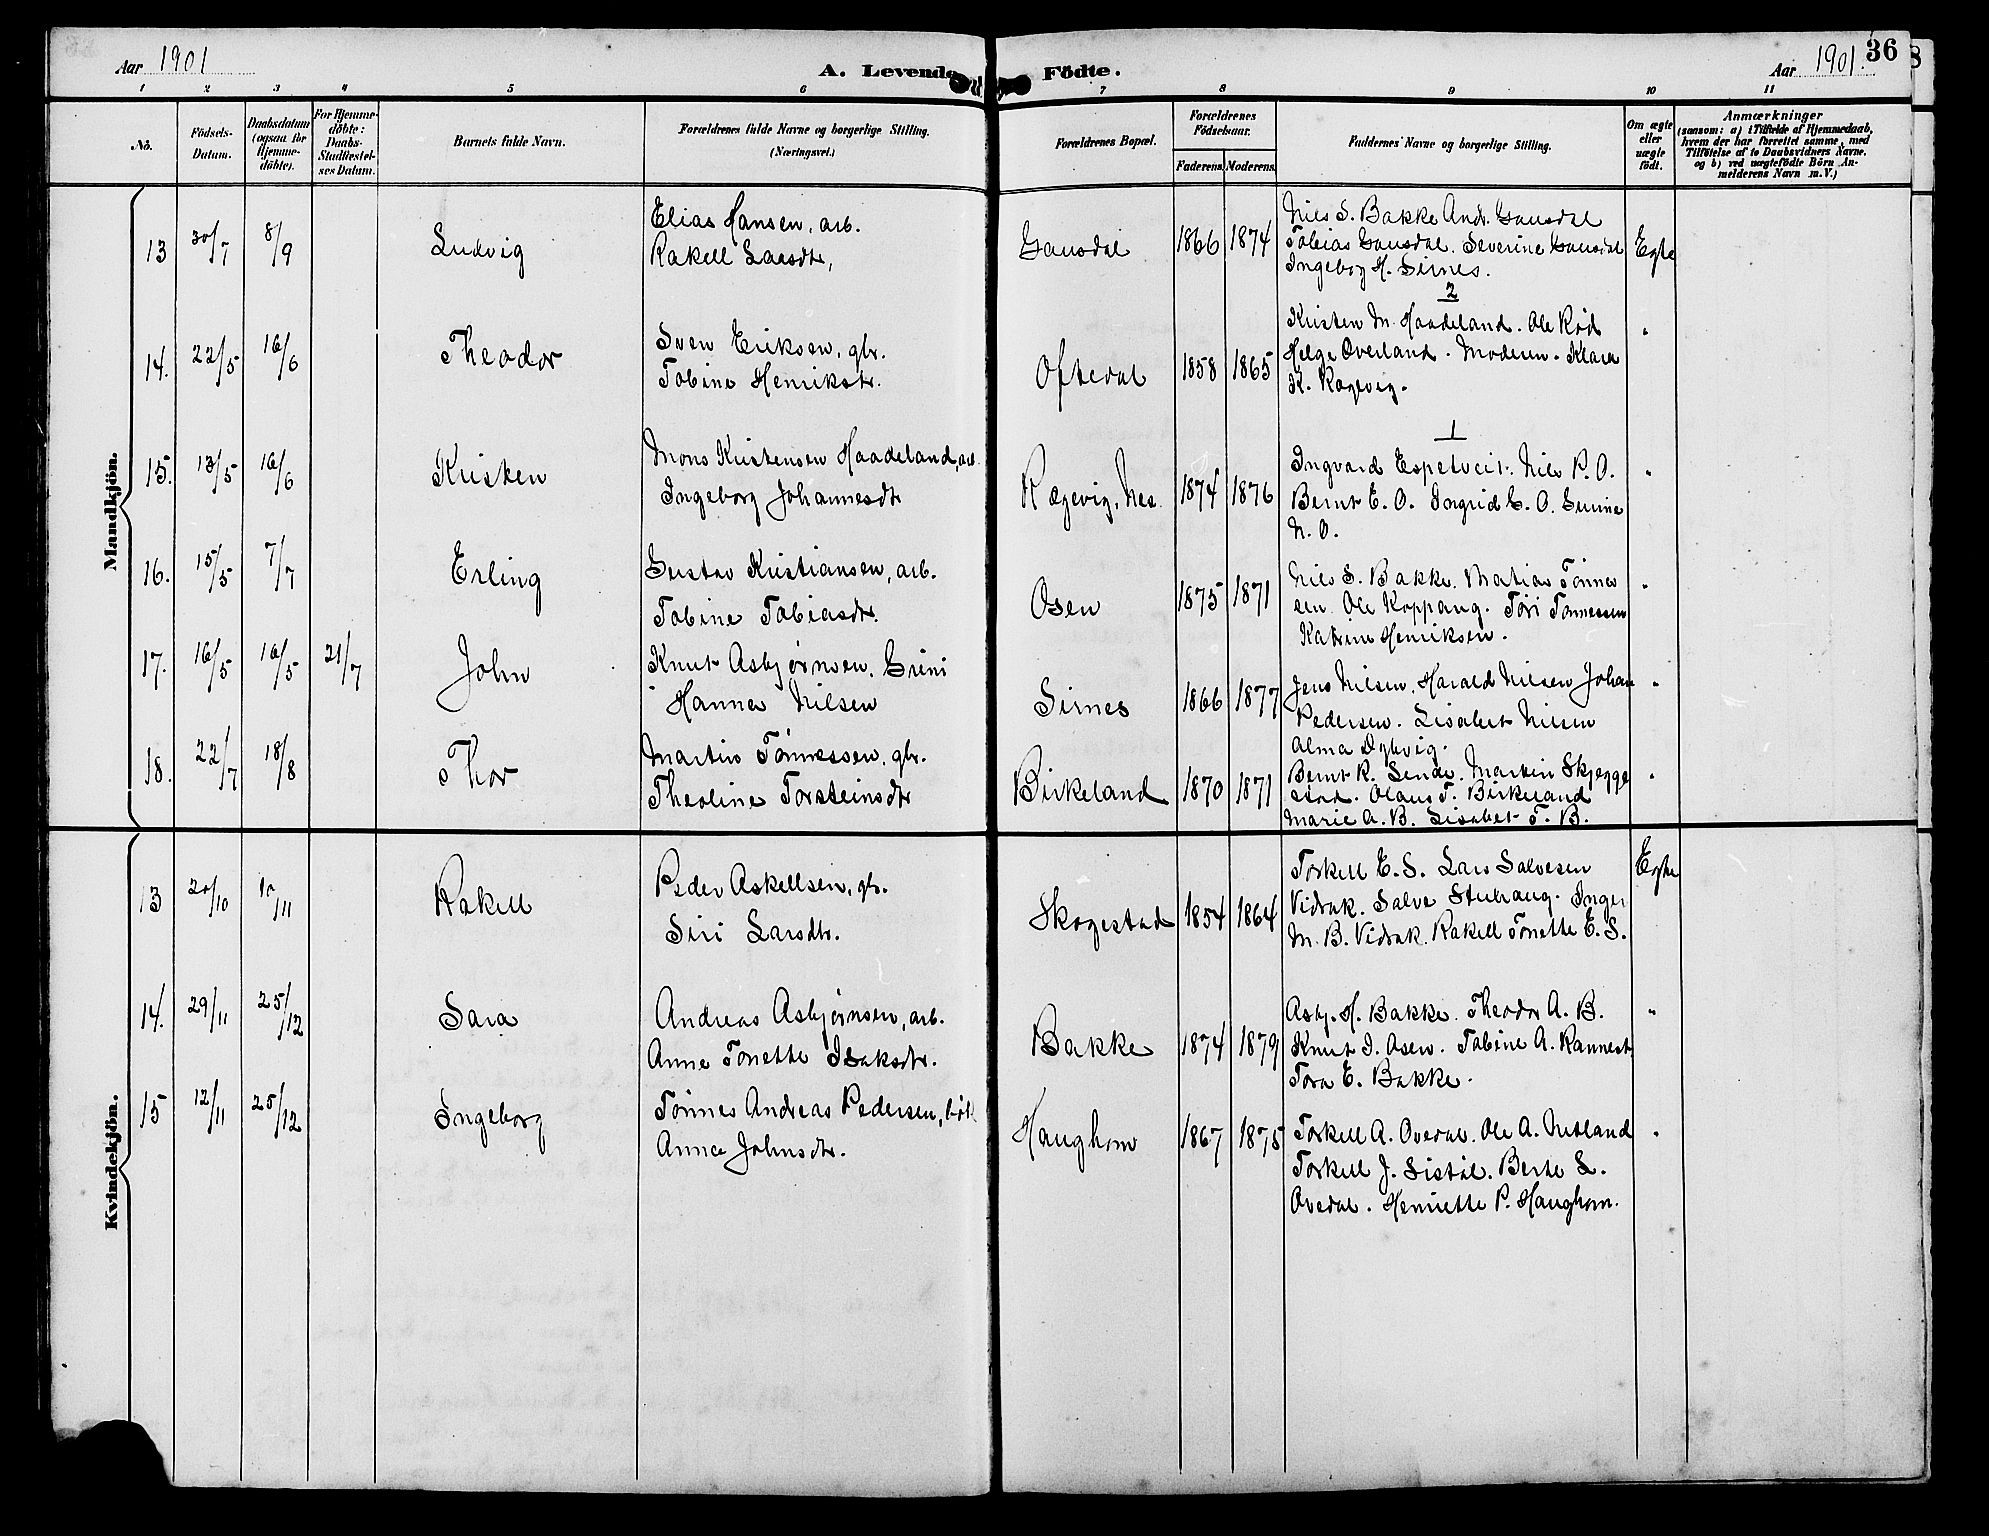 Aar 1901
A. Levende Fødte.
Aar 1901.
36
1 2 3 4 5 6 7 8 9 10 11
No.
Födsels-Datum.
Daabsdatum (ogsaa for Hjemme-döbte).
For Hjemme-döbte: Daabs-Stadfæstel-ses Datum.
Barnets fulde Navn.
Forældrenes fulde Navne og borgerlige Stilling. (Næringsvei.)
Forældrenes Bopæl.
Forældrenes Födselsaar.
Faderens Moderens
Faddernes Navne og borgerlige Stilling.
Om ægte eller uægte født.
Anmærkninger
(saasom: a) i Tilfælde af Hjemmedaab,
hvem der har forrettet samme, med
Tilföielse af to Daabsvidners Navne.
og b) ved uægtefødte Börn An-
melderens Navn m.V.)
Mandkjön.
13 30/7 8/9 Ludvig
Elias Hansen, arb.
Rakell Larsdtr,
Gausdal 1866 1874
Nils S. Bakke And. Gausdal
Tobias Gausdal. Severine Gausdal
Ingeborg H. Sirnes.
Egte
2
14. 22/5 16/6 Theodor
Sven Eriksen, gbr.
Tobine Henriksdtr.
Oftedal 1858 1865
Kristen M. Haadeland. Ole Rød
Helge Overland. Moderen. Klara
K. Rægevig.
"
1
15. 13/5 16/6 Kristen
Mons Kristensen Haadeland, arb.
Ingeborg Johannesdtr
Rægevig, Nes. 1874 1876
Ingvard Espetveit. Nils P. O.
Bernt E. O. Ingrid E. O. Serine
N. O.
"
16. 15/5 7/7 Erling
Gustav Kristiansen, arb.
Tobine Tobiasdtr.
Osen 1875 1871
Nils S. Bakke. Matias Tønnes
sen. Ole Koppang. Tøri Tønnessen
Katrine Henriksen.
"
17. 16/5 16/5 21/7 John
Knut Asbjørnsen,
Hanna Nilsen
Sirnes 1866 1877
Jens Nilsen, Harald Nilsen Johan
Pedersen. Lisabet Nilsen
Alma Dybvig.
"
18. 22/7 18/8 Thor
Martin Tønnessen, gbr.
Theoline Torsteinsdtr
Birkeland 1870 1871
Bernt R. Sende. Martin Skjegge
stad. Olaus T. Birkeland
Marie A. B. Lisabet T. B.
"
Kvindekjön.
13 20/10 10/11 Rakell
Peder Askellsen, gb.
Siri Larsdtr.
Skogestad 1854 1864
Torkell E. S. Lars Salvesen
Vidrak. Salve Stubraug. Inger
M. B. Vidrak. Rakell Tonette E. S.
Egte
14. 29/11 25/12 Sara
Andreas Asbjørnsen, arb.
Anne Tonette Isaksdtr.
Bakke 1874 1879
Asbj. H. Bakke. Theodor A. B.
Knut I. Osen. Tobine A. Rannest
Tora E. Bakke.
"
15 12/11 25/12 Ingeborg
Tønnes Andreas Pedersen,
Anna Johnsdtr.
Haughom 1867 1875
Torkell A. Ovedal. Ole A. Netland
Torkell J. Listøl. Berte L.
Ovedal. Henriette P. Haughom.
"